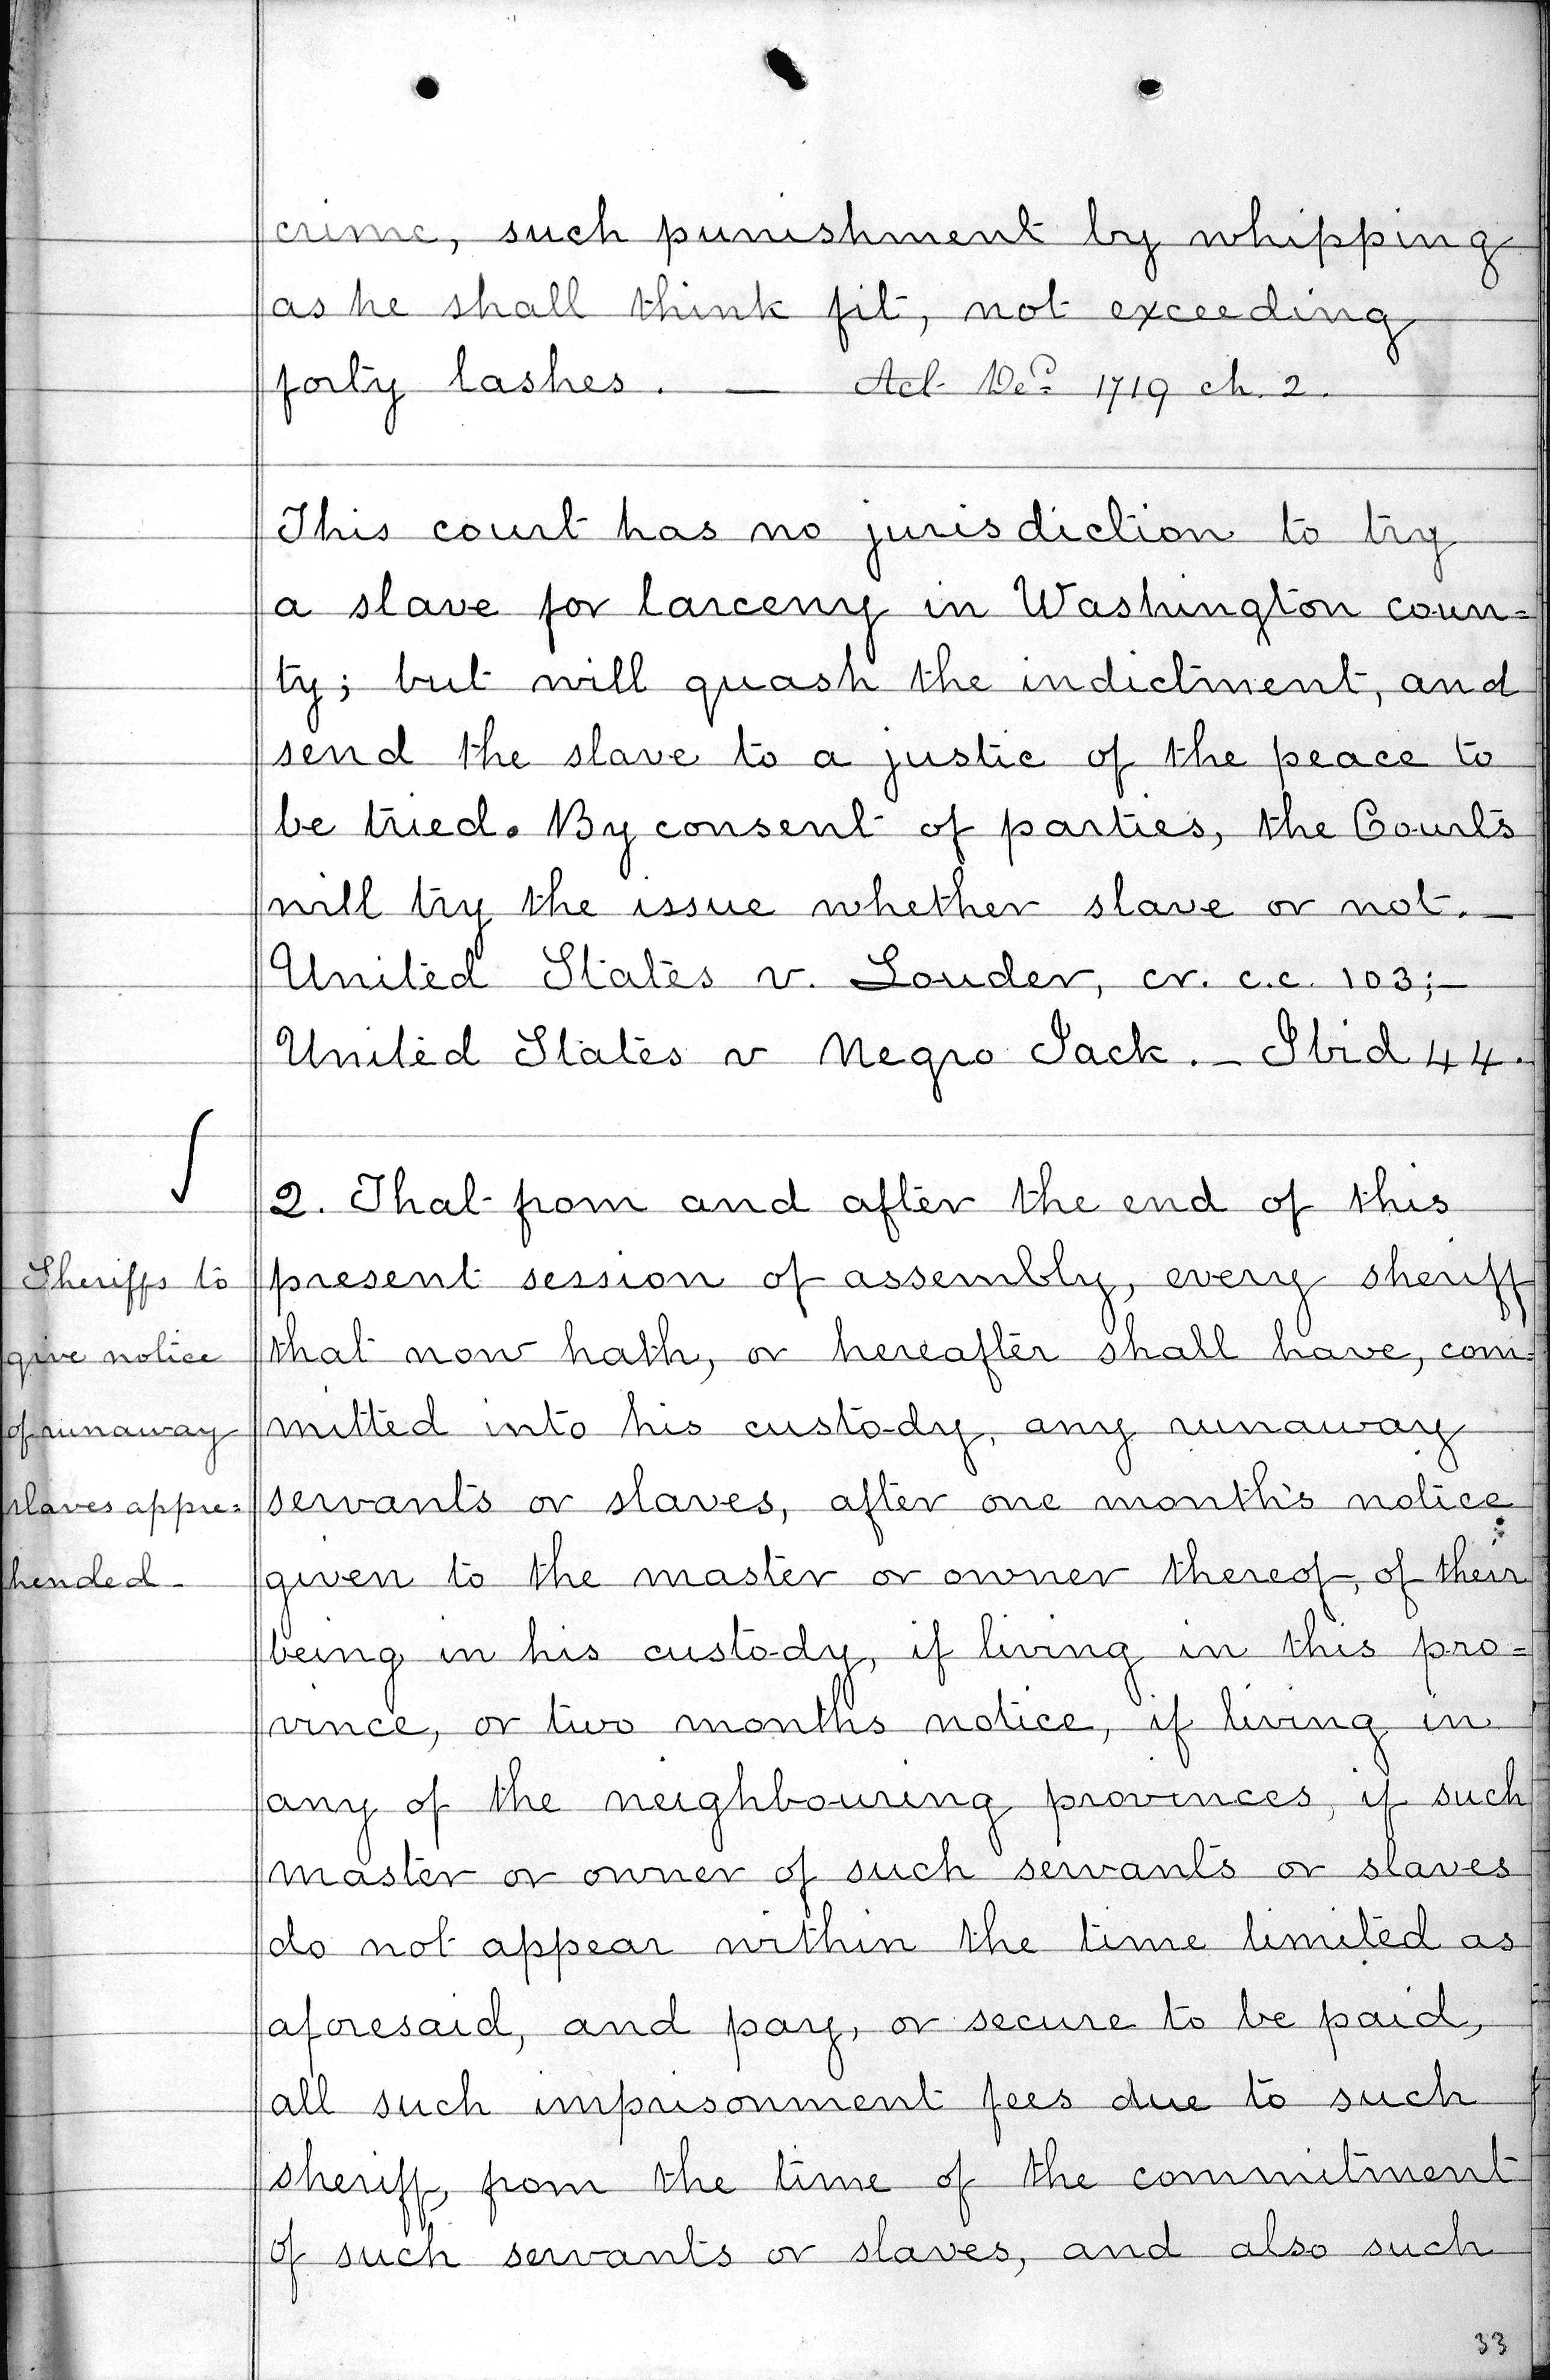 crime, such punishment by whipping
as he shall think fit, not exceeding
forty lashes. — Act Dec. 1719 ch. 2.
This court has no jurisdiction to try
a slave for larceny in Washington coun=
ty; but will quash the indictment, and
send the slave to a justic of the peace to
be tried. By consent of parties, the Courts
will try the issue whether slave or not. —
United States v. Louder, cr. c.c. 103; —
United States v Negro Jack. — Ibid 44.
2. That from and after the end of this
present session of assembly, every sheriff
that now hath, or hereafter shall have, com=
mitted into his custody, any runaway
servants or slaves, after one month's notice
given to the master or owner thereof, of their
being in his custody, if living in this pro=
vince, or two months notice, if living in
any of the neighbouring provinces, if such
master or owner of such servants or slaves
do not appear within the time limited as
aforesaid, and pay, or secure to be paid,
all such imprisonment fees due to such
sheriff, from the time of the commitment
of such servants or slaves, and also such
Sheriffs to
give notice
of runaway
slaves appre=
hended.
33